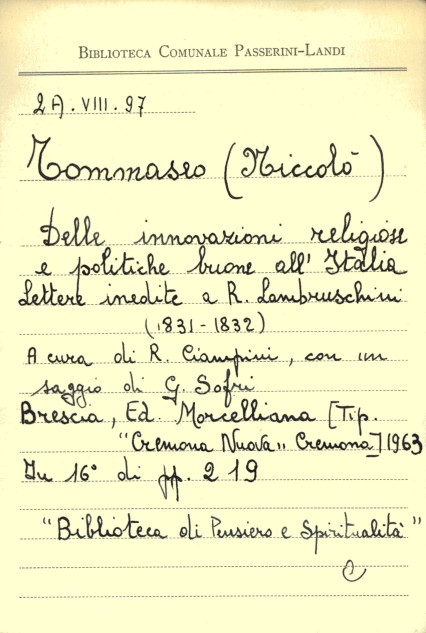 BIBLIOTECA COMUNALE PASSERINI-LANDI
2A. VIII. 97
Tommaseo (Niccolò)
Delle innovazioni religiose
e politiche buone all' Italia
Lettere inedite a R. Lambruschini
(1831-1832)
A cura di R. Ciampini, con un
saggio di G. Sofri
Brescia, Ed. Morcelliana [Tip.
"Cremona Nuova" Cremona] 1963
In 16° di pp. 219
"Biblioteca di Pensiero e Spiritualità"